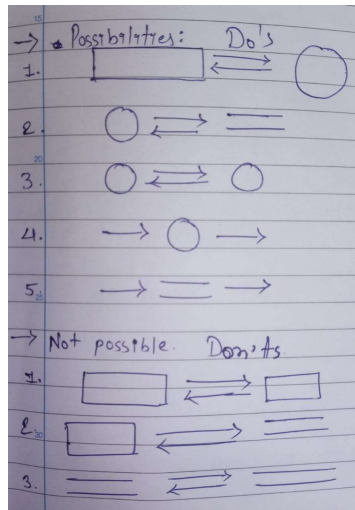 15
→ * Possibilities: Do's
1.
2.
20
3.
4.
5.
25
→ Not possible. Don'ts
1.
2.
30
3.